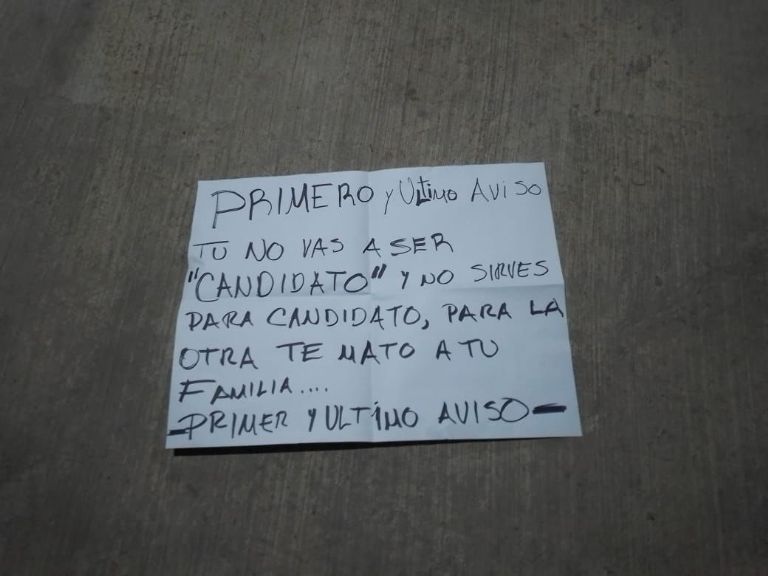 PRIMERO y ULtimo AViSO
TU NO VAS A SER
"CANDIDATO" Y NO SIRVES
PARA CANDIDATO, PARA LA
OTRA TE MATO A TU
FAMILIA....
-PRIMER Y ULTiMO AVISO-